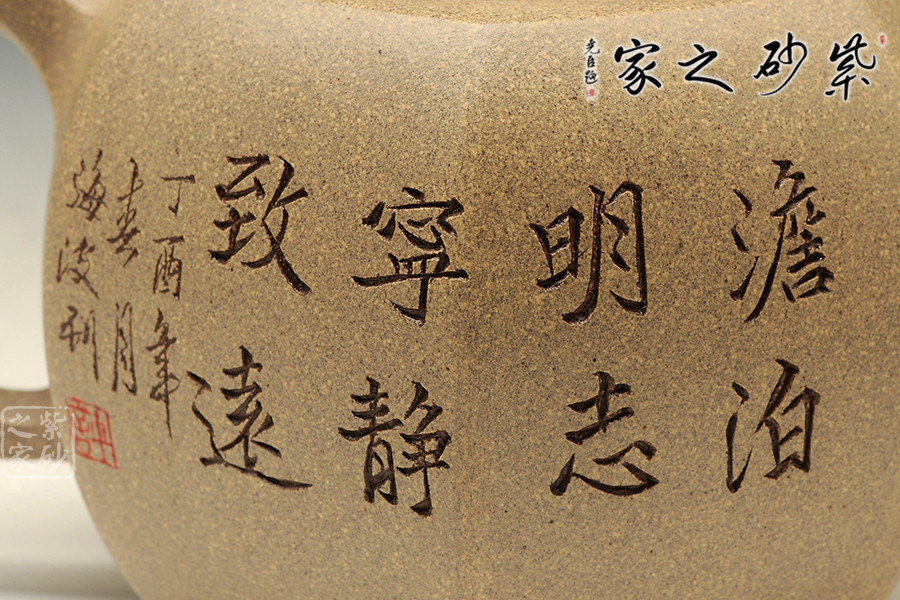 紫砂之家
澹泊
明志
寧静
致遠
丁酉年
春月
海波
紫砂
之家